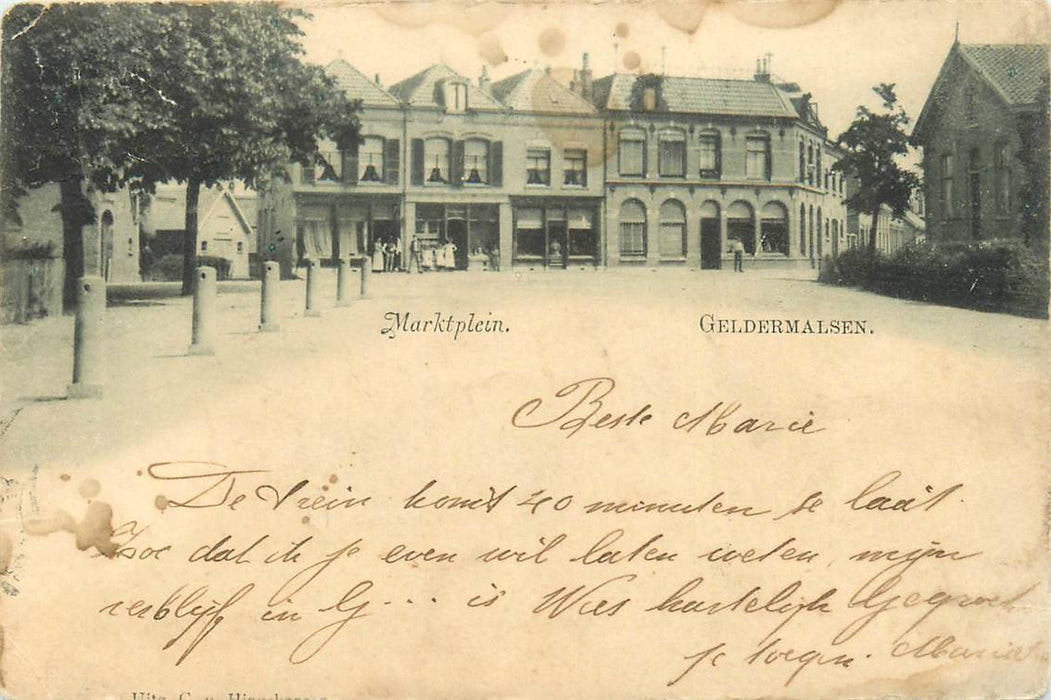 Marktplein. GELDERMALSEN.
Beste Marie
De trein komt 40 minuten te laat.
Zoo dat ik je even wil laten weten, mijn
verblijf in G... is Wees hartelijk Gegroet
je Marie
Uitg. C. v.